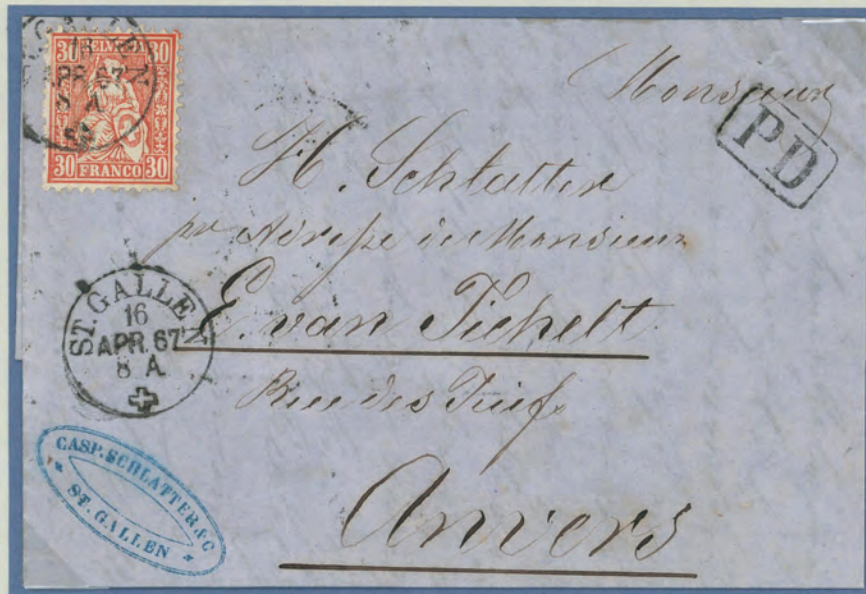 30 HELVETIA 30
30 FRANCO 30
APR. 67
Monsieur
PD
H. Schlatter
pr Adresse de Monsieur
E. van Tichelt
Rue des Juifs
Anvers
ST. GALLEN
16
APR. 67
8 A.
CASP. SCHLATTER & C
ST. GALLEN